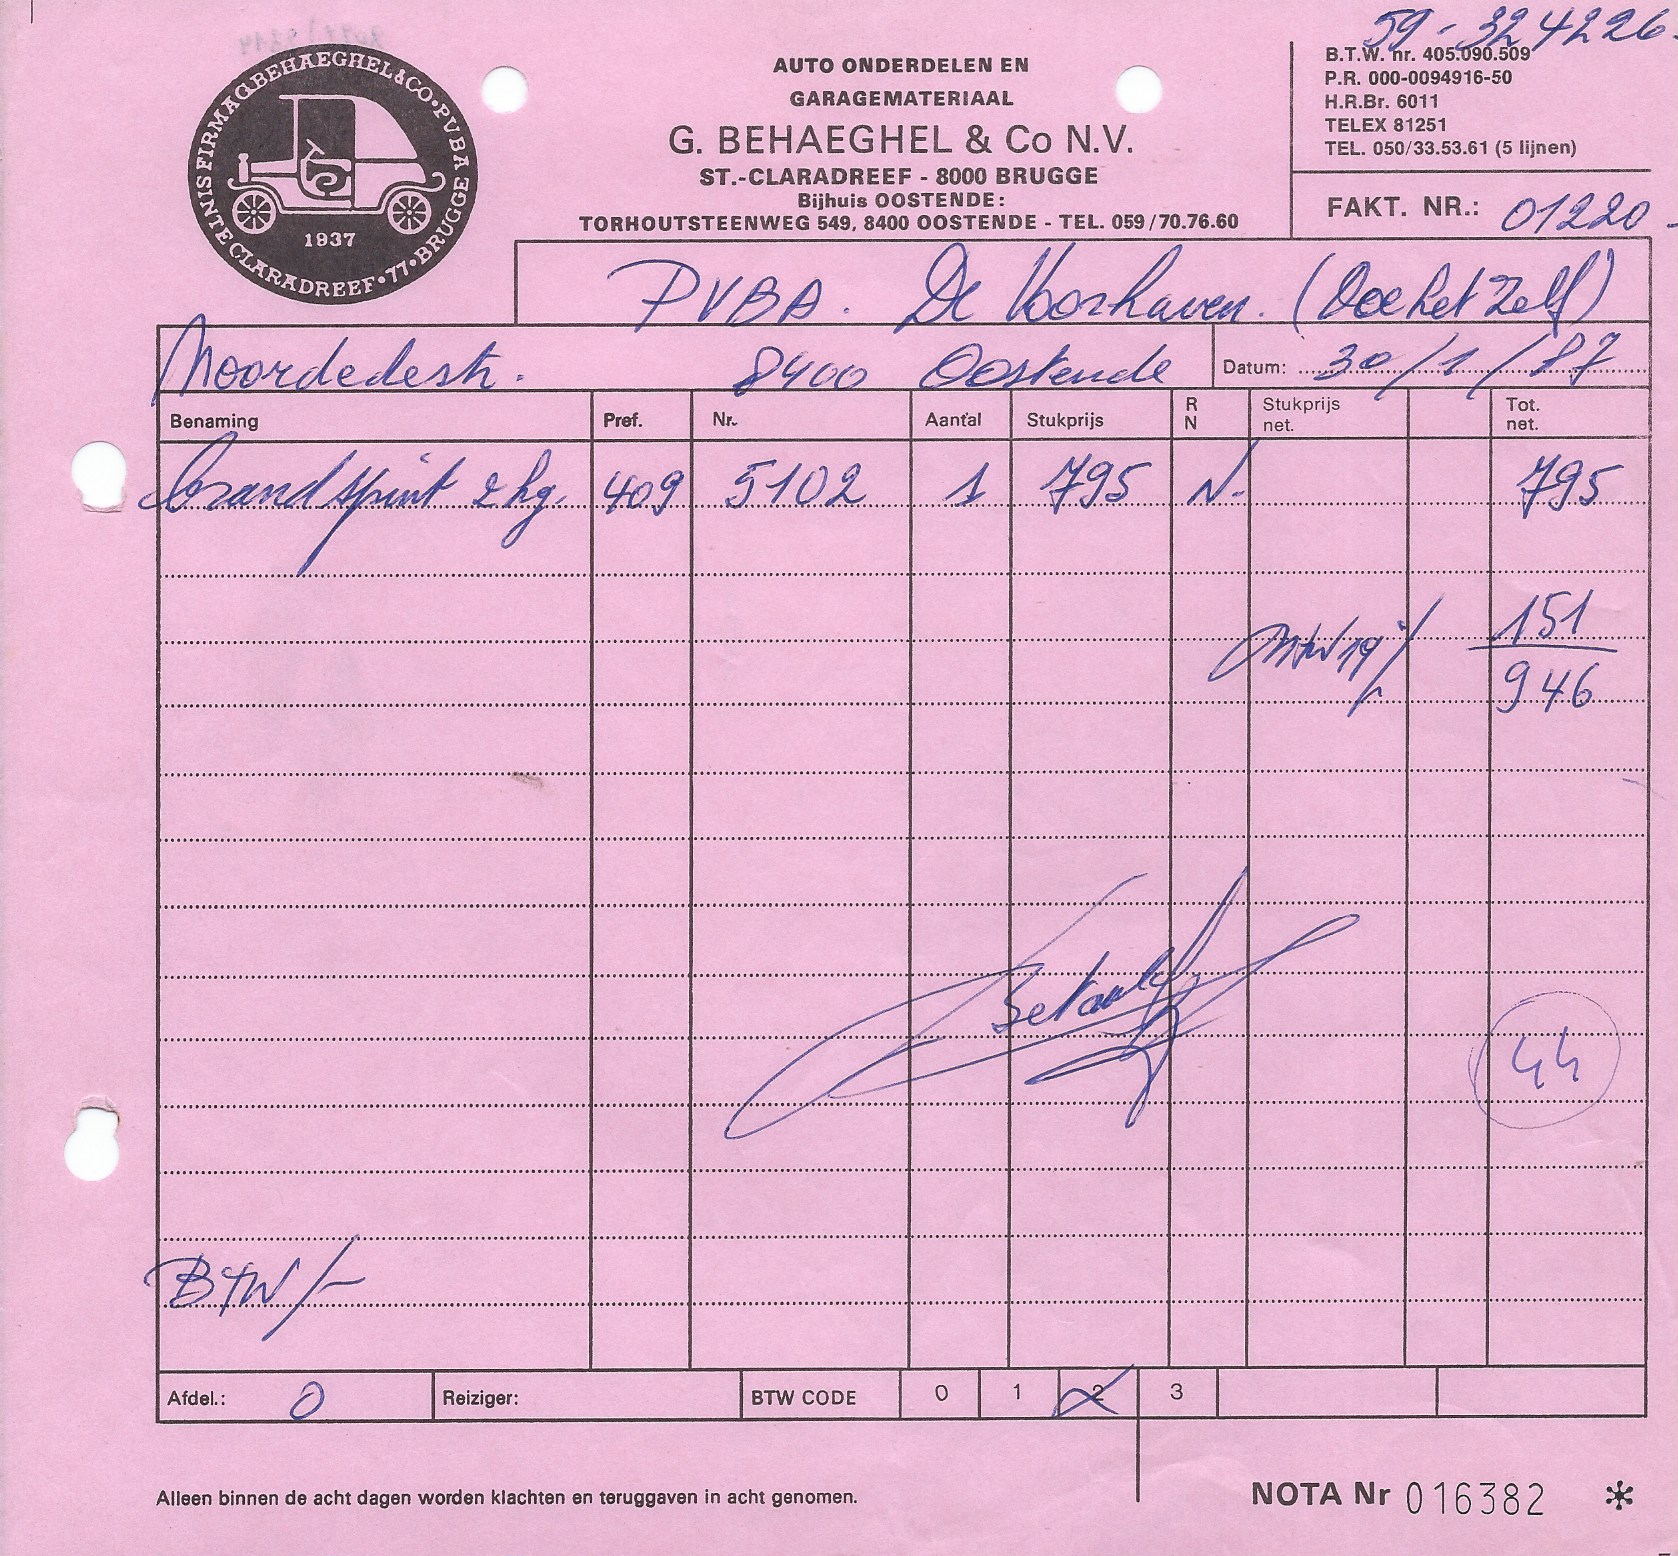 59-324226
SINTE CLARADREEF • 77 • BRUGGE FIRMA G BEHAEGHEL & CO • PVBA
1937
AUTO ONDERDELEN EN
GARAGEMATERIAAL
G. BEHAEGHEL & Co N.V.
ST.-CLARADREEF - 8000 BRUGGE
Bijhuis OOSTENDE:
TORHOUTSTEENWEG 549, 8400 OOSTENDE - TEL. 059/70.76.60
B.T.W. nr. 405.090.509
P.R. 000-0094916-50
H.R.Br. 6011
TELEX 81251
TEL. 050/33.53.61 (5 lijnen)
FAKT. NR.: 01220
PVBA. De Voorhaven. (Doe het zelf)
8400 Oostende Datum: 30/1/87
Benaming Pref. Nr. Aantal Stukprijs R N Stukprijs net. Tot. net.
2 kg. 409 5102 1 795 N. 795
BTW 19% 151
946
Betaald
44
BTW/-
Afdel.: 0 Reiziger: BTW CODE 0 1 2 3
Alleen binnen de acht dagen worden klachten en teruggaven in acht genomen.
NOTA Nr 016382 *